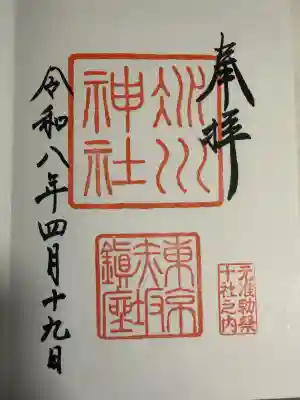 奉拝
氷川神社
東京赤坂鎮座
元准勅祭十社之内
令和八年四月十九日